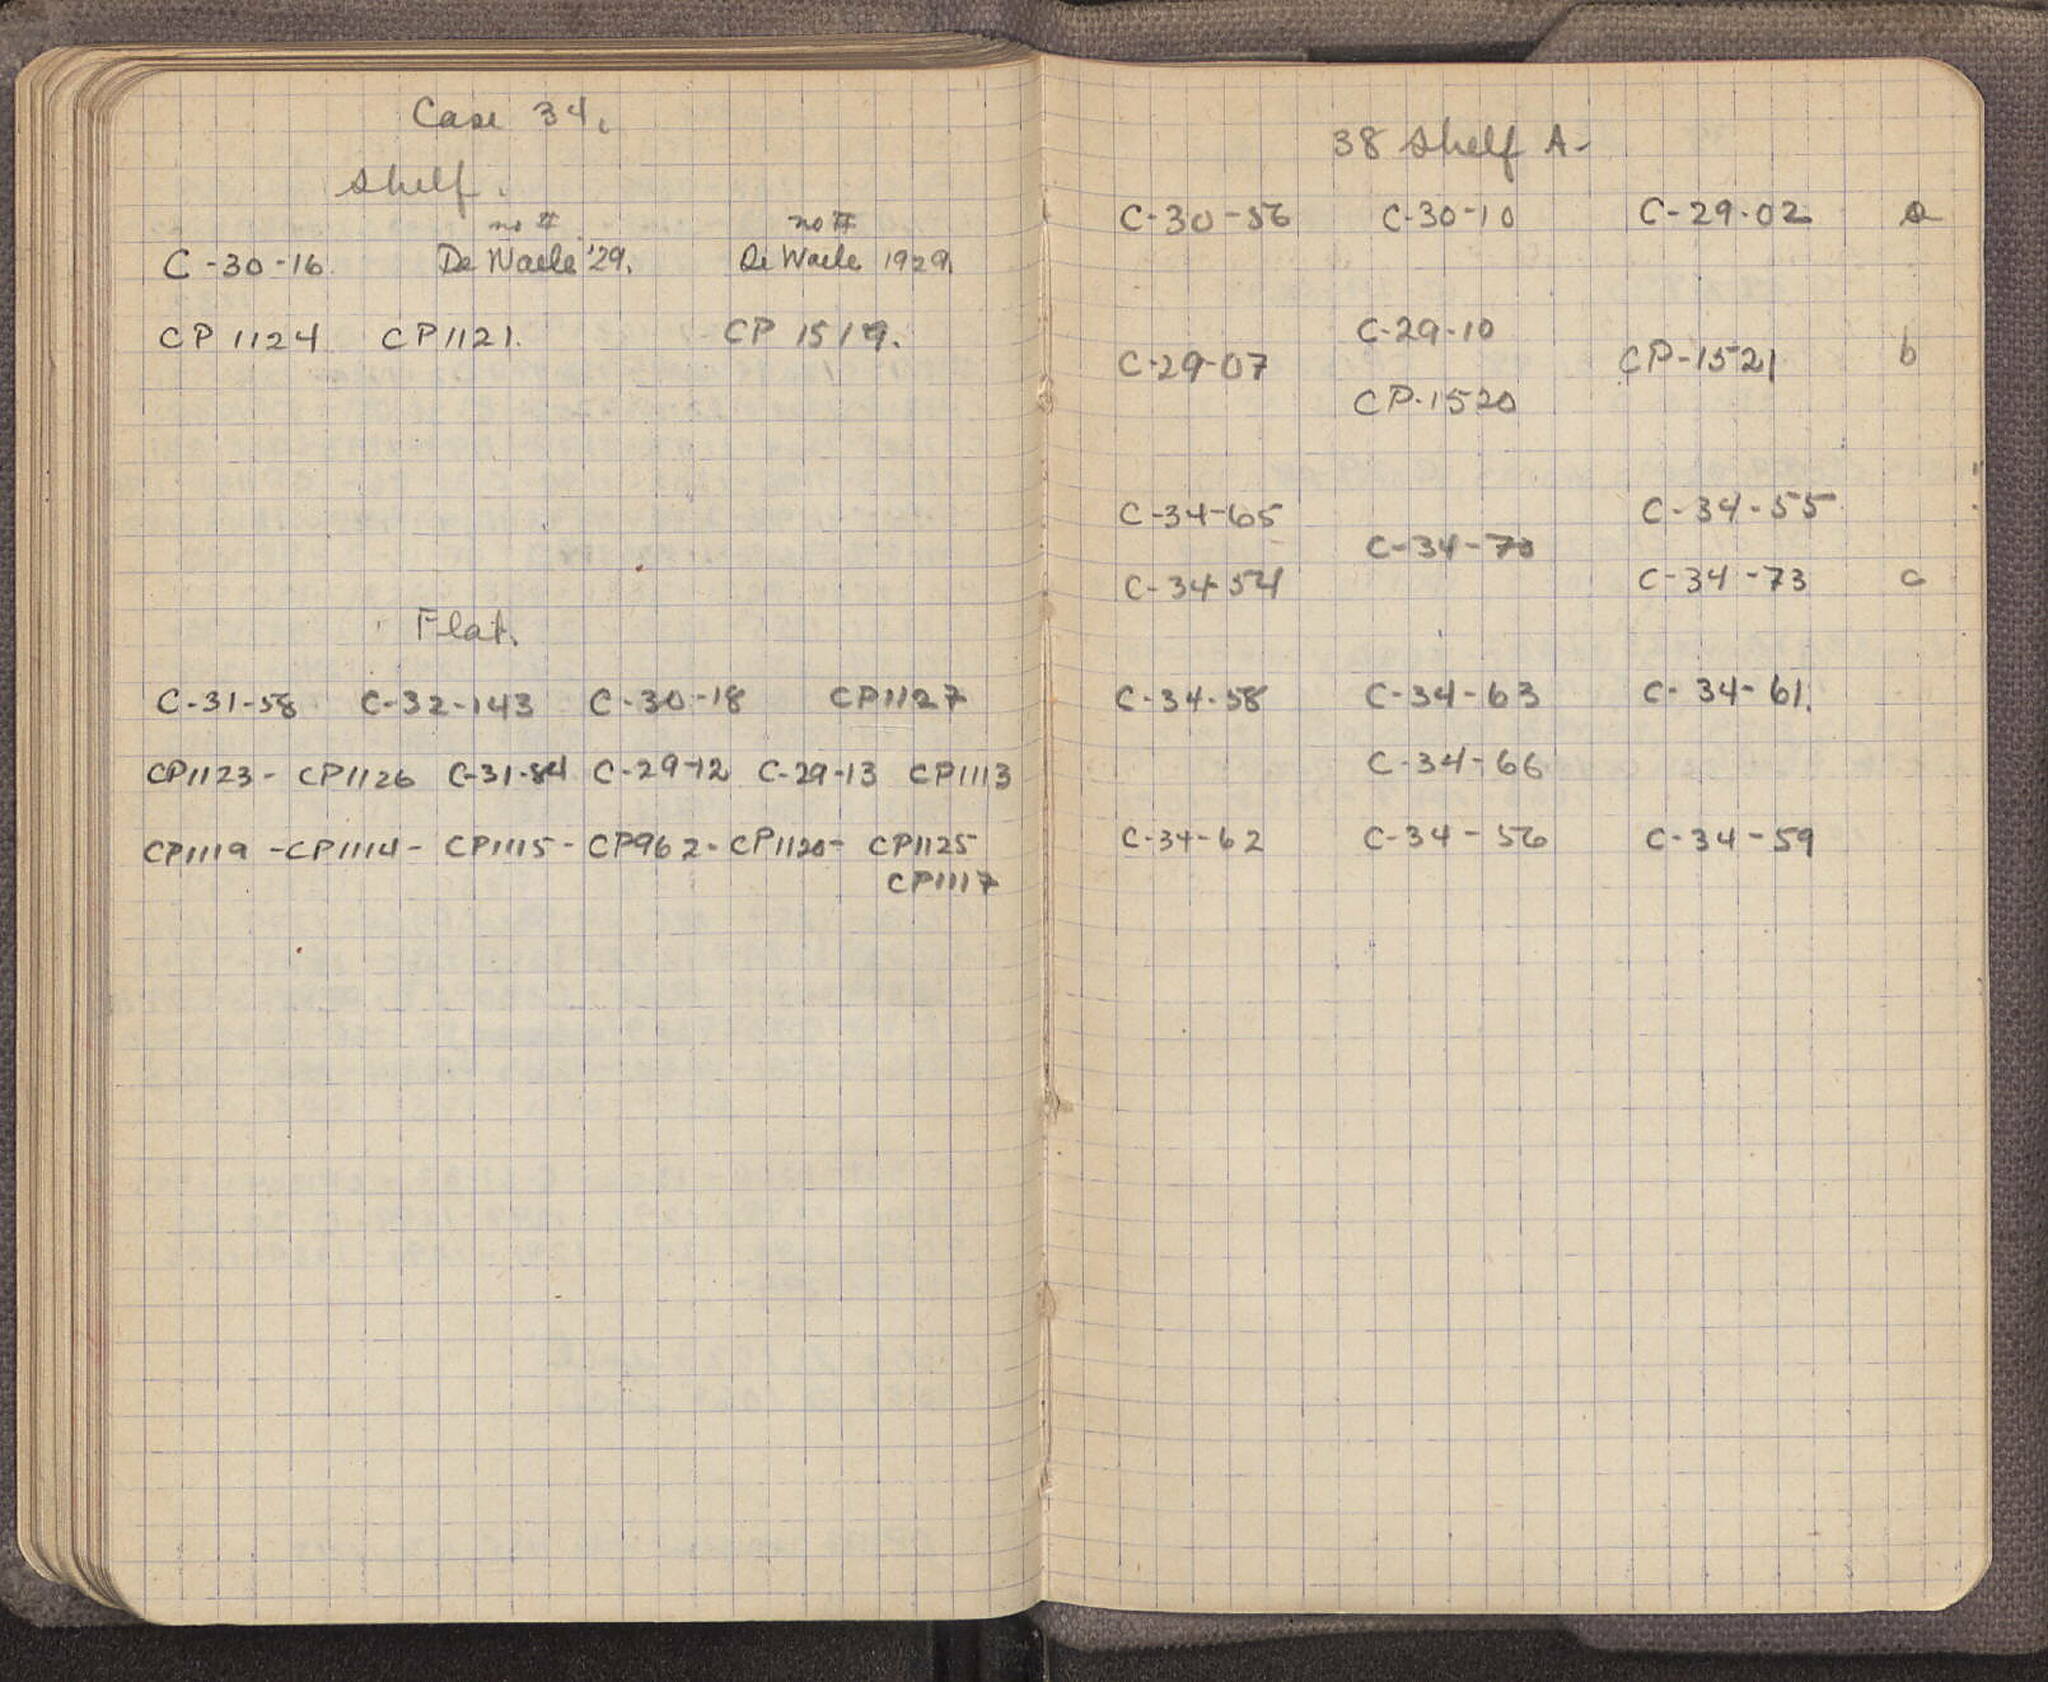 Case 34.
Shelf.
no # no #
C-30-16. De Waele '29. De Waele 1929.
CP 1124 CP1121. CP 1519.
Flat.
C-31-58 C-32-143 C-30-18 CP1127
CP1123- CP1126 C-31-84 C-29-12 C-29-13 CP1113
CP1119 -CP1114- CP1115- CP962- CP1120- CP1125
CP1117
38 Shelf A-
C-30-56 C-30-10 C-29-02 a
C-29-10
C-29-07 CP-1521 b
CP-1520
C-34-65 C-34-55
C-34-70
C-34-54 C-34-73 c
C-34-58 C-34-63 C-34-61.
C-34-66
C-34-62 C-34-56 C-34-59